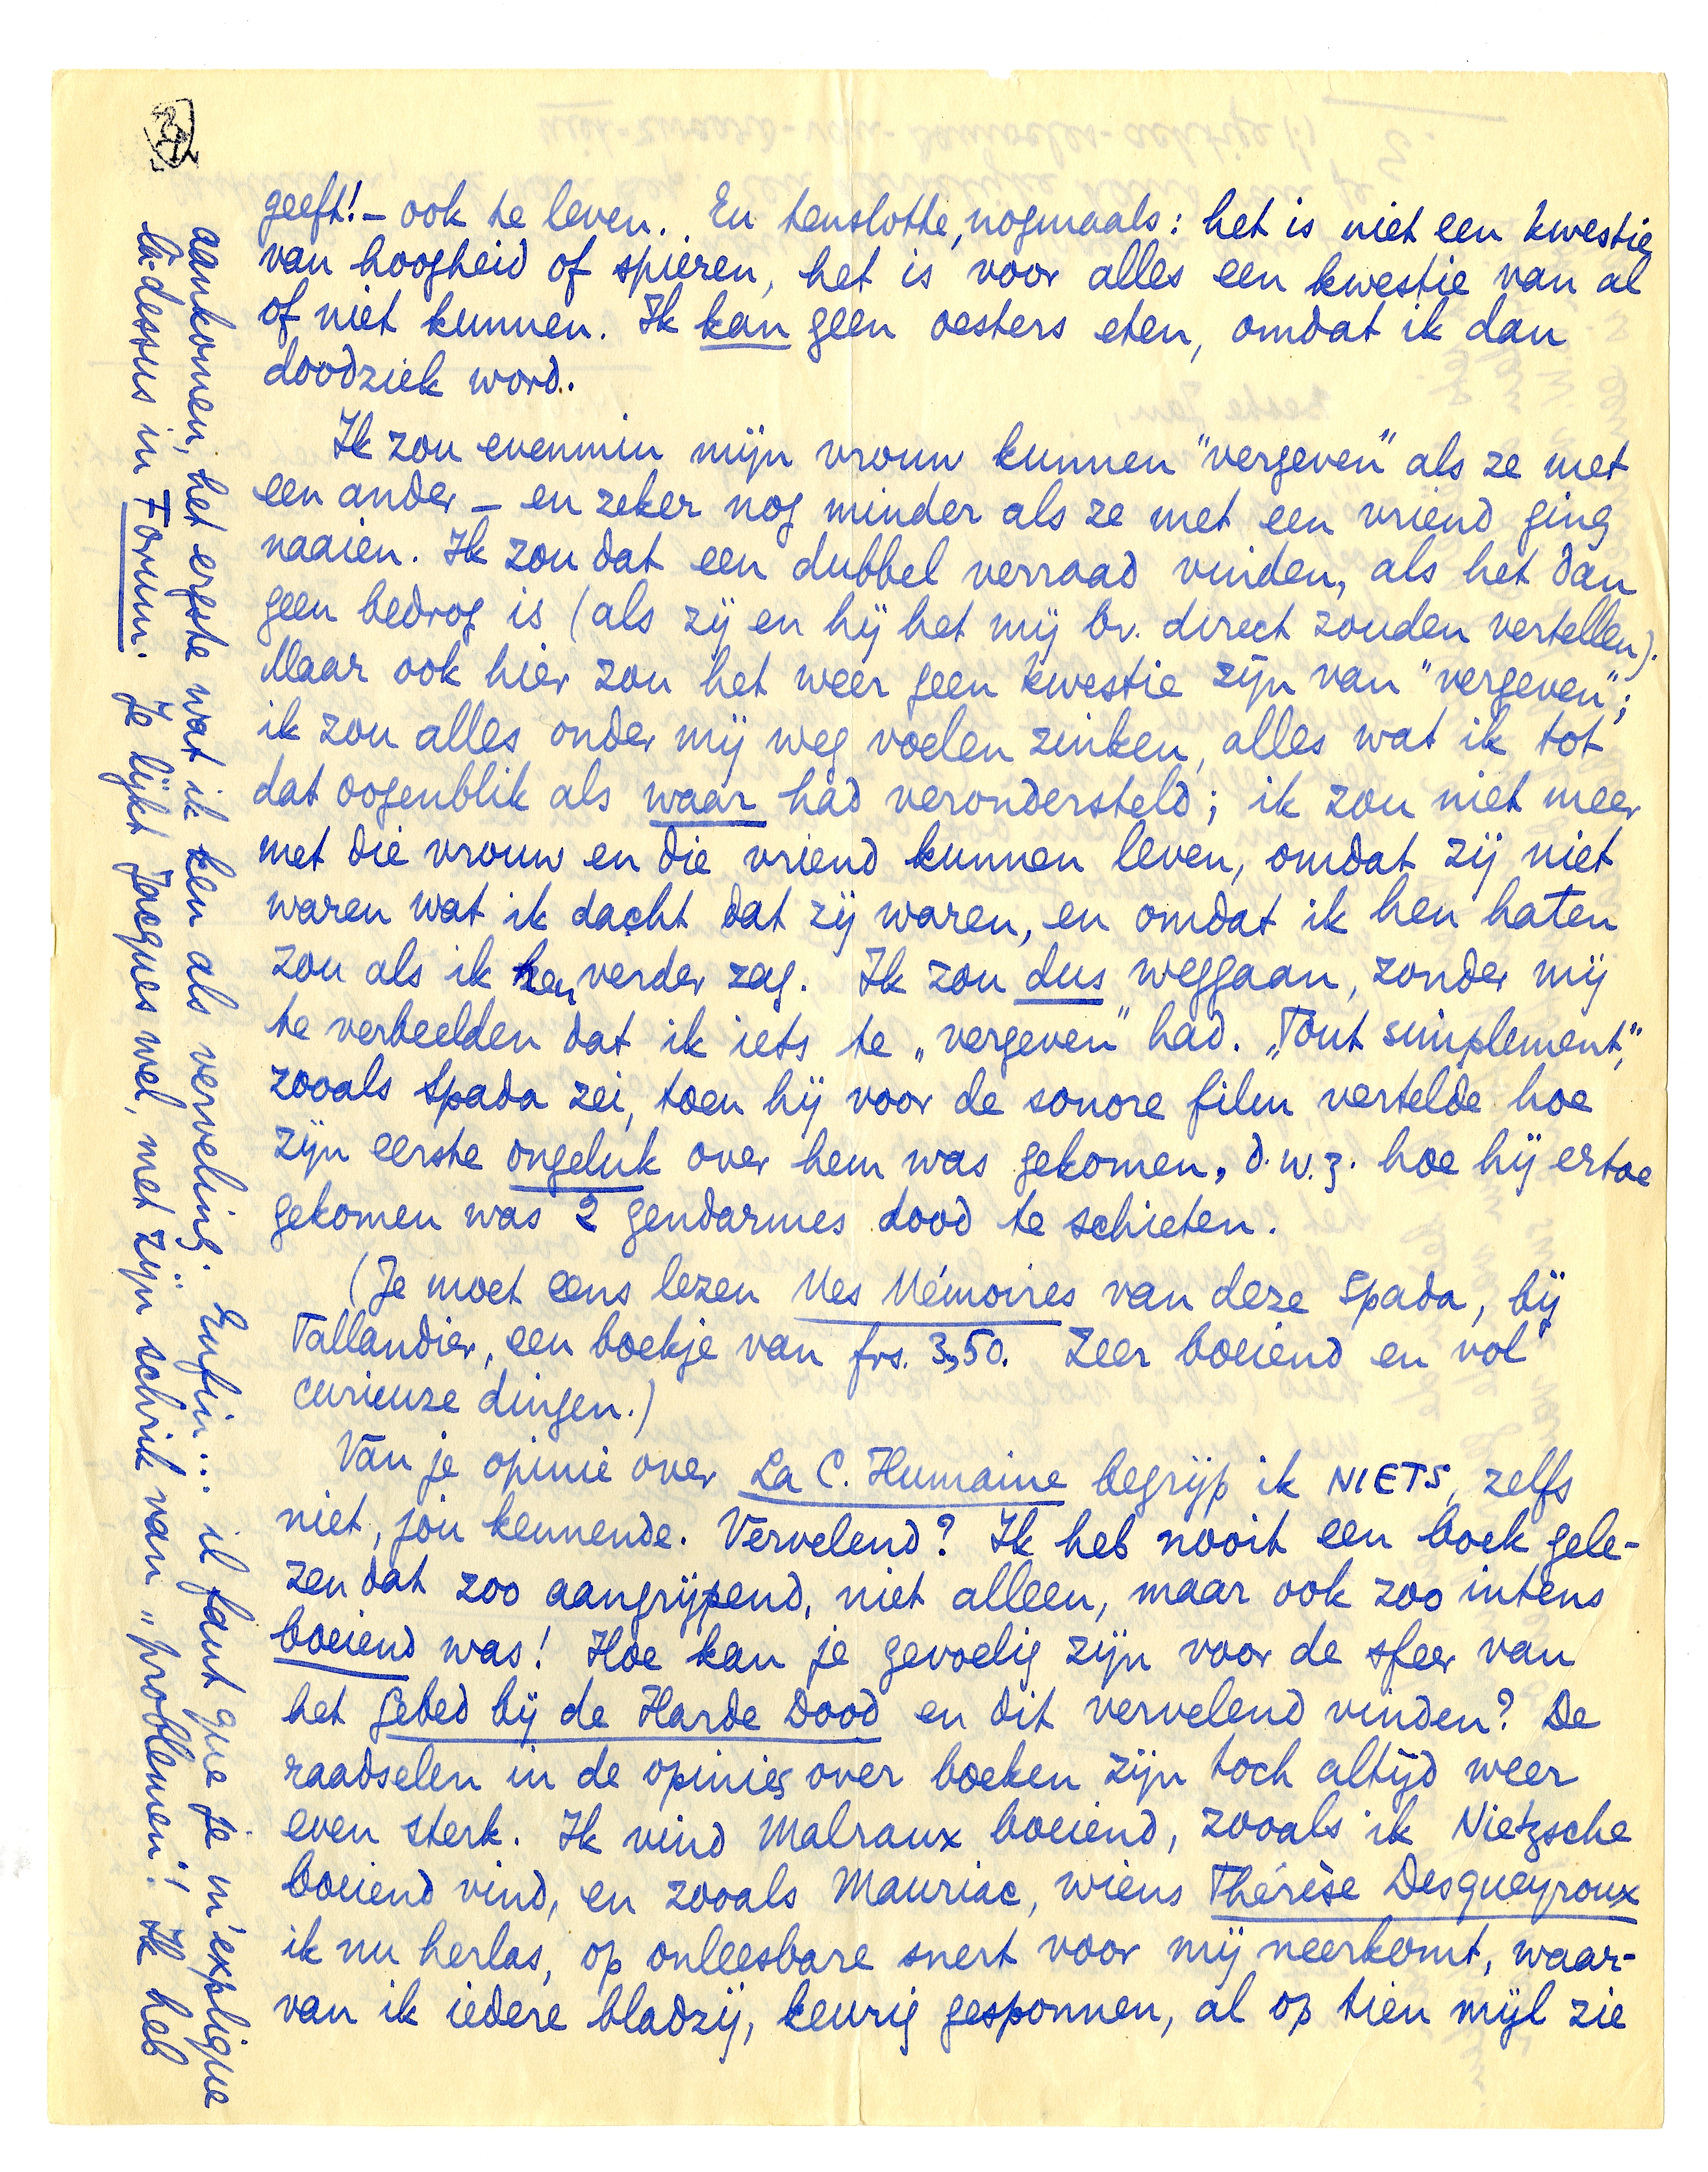 geeft! – ook te leven. En tenslotte, nogmaals: het is niet een kwestie
van hoogheid of spieren, het is voor alles een kwestie van al
of niet kunnen. Ik kan geen oesters eten, omdat ik dan
doodziek word.
Ik zou evenmin mijn vrouw kunnen "vergeven" als ze met
een ander – en zeker nog minder als ze met een vriend ging
naaien. Ik zou dat een dubbel verraad vinden, als het dan
geen bedrog is (als zij en hij het mij bv. direct zouden vertellen).
Maar ook hier zou het weer geen kwestie zijn van "vergeven";
ik zou alles onder mij weg voelen zinken, alles wat ik tot
dat oogenblik als waar had verondersteld; ik zou niet meer
met die vrouw en die vriend kunnen leven, omdat zij niet
waren wat ik dacht dat zij waren, en omdat ik hen haten
zou als ik hen verder zag. Ik zou dus weggaan, zonder mij
te verbeelden dat ik iets te „vergeven" had. „Tout simplement",
zooals Spada zei, toen hij voor de sonore film vertelde hoe
zijn eerste ongeluk over hem was gekomen, d.w.z. hoe hij ertoe
gekomen was 2 gendarmes dood te schieten.
(Je moet eens lezen Mes Mémoires van deze Spada, bij
Tallandier, een boekje van frs. 3,50. Zeer boeiend en vol
curieuze dingen.)
Van je opinie over La C. Humaine begrijp ik NIETS, zelfs
niet, jou kennende. Vervelend? Ik heb nooit een boek gele-
zen dat zoo aangrijpend, niet alleen, maar ook zoo intens
boeiend was! Hoe kan je gevoelig zijn voor de sfeer van
het Gebed bij de Harde Dood en dit vervelend vinden? De
raadselen in de opinies over boeken zijn toch altijd weer
even sterk. Ik vind Malraux boeiend, zooals ik Nietzsche
boeiend vind, en zooals Mauriac, wiens Thérèse Desqueyroux
ik nu herlas, op onleesbare snert voor mij neerkomt, waar-
van ik iedere bladzij, keurig gesponnen, al op tien mijl zie
aankomen, het ergste wat ik ken als verveling. Enfin... il faut que je m'explique
là-dessus in Forum. Je lijkt Jacques wel, met zijn schrik van „problemen"! Ik heb